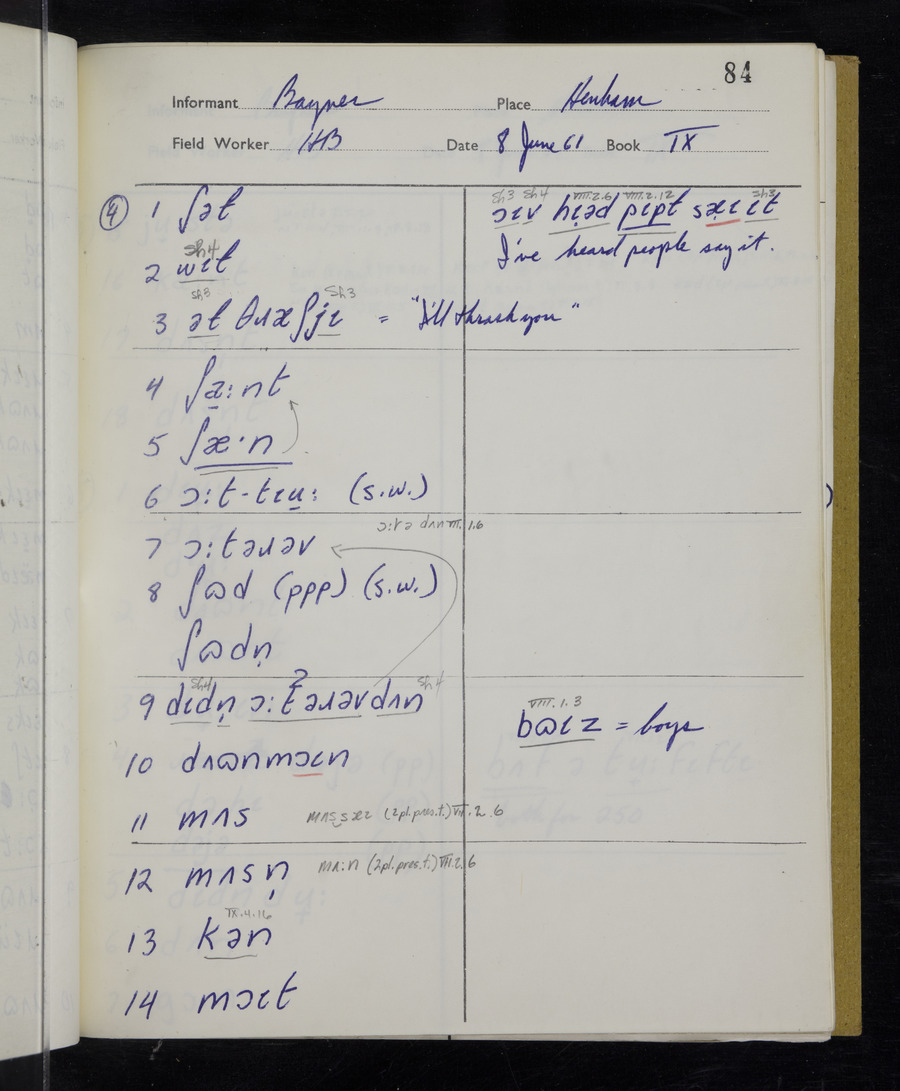 84
Informant Bayner Place Henham
Field Worker HB Date 8 June 61 Book IX
④ 1 ʃət
sh3 sh4 VIII.2.6 VIII.2.12 sh3
ɔɪv hɪəd pɪpt sæɪ ɪt
I've heard people say it.
sh4
2 wɪt
sh3 sh3
3 ət θɹæʃjɪ = "I'll thrash you"
4 ʃa:nt
5 ʃæ·n
6 ɔ:t-tɪu: (s.w.)
ɔ:tə dʌn VIII.1.6
7 ɔ:təɹəv
8 ʃɷd (ppp) (s.w.)
ʃɷdn̩
sh4 sh4
9 dɪdn̩ ɔ:təɹəv dʌn
VIII.1.3
bɷɪz = boys
10 dʌɷnmɔɪn
11 mʌs mʌssæɪ (2pl.pres.t.) VIII.2.6
12 mʌsn̩ mʌ:n (2pl.pres.t.) VIII.2.6
IX.4.16
13 kən
14 mɔɪt